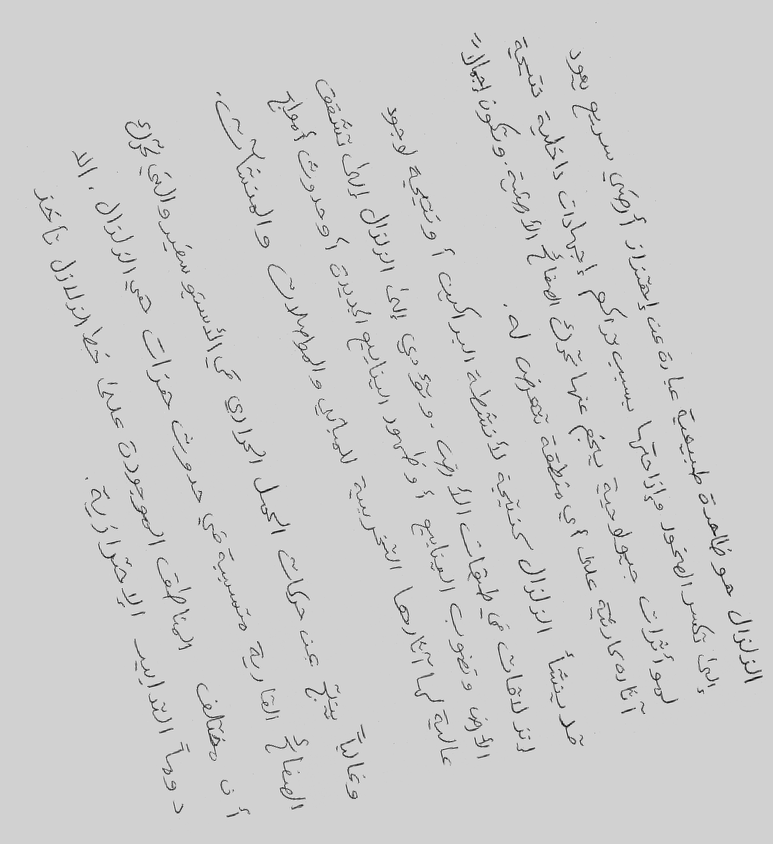 الزلزال هو ظاهرة طبيعية عبارة عن إهتزاز أرضي سريع يعود
إلى تكسر الصخور وإزاحتها بسبب تراكم إجهادات داخلية نتيجة
لمؤثرات جيولوجية ينجم عنها تحرك الصفائح الأرضية. وتكون إجمالاً
آثاره كارثية على أي منطقة تتعرض له.
قد ينشأ الزلزال كنتيجة لأنشطة البراكين أو نتيجة لوجود
إنزلاقات في طبقات الأرض. وتؤدي إلى الزلزال إلى تشقق
الأرض ونضوب الينابيع أو ظهور الينابيع الجديدة أو حدوث أمواج
عالية لها آثارها التخريبية للمباني والمواصلات والمنشآت.
وغالباً ينتج عن حركات الحمل الحراري في الأستينوسفير والتي تحرك
الصفائح القارية متسببة في حدوث هزات هي الزلزال. الا
أن مختلف المناطق الموجودة على خط الزلازل تأخذ
دوماً التدابير الإحترازية.